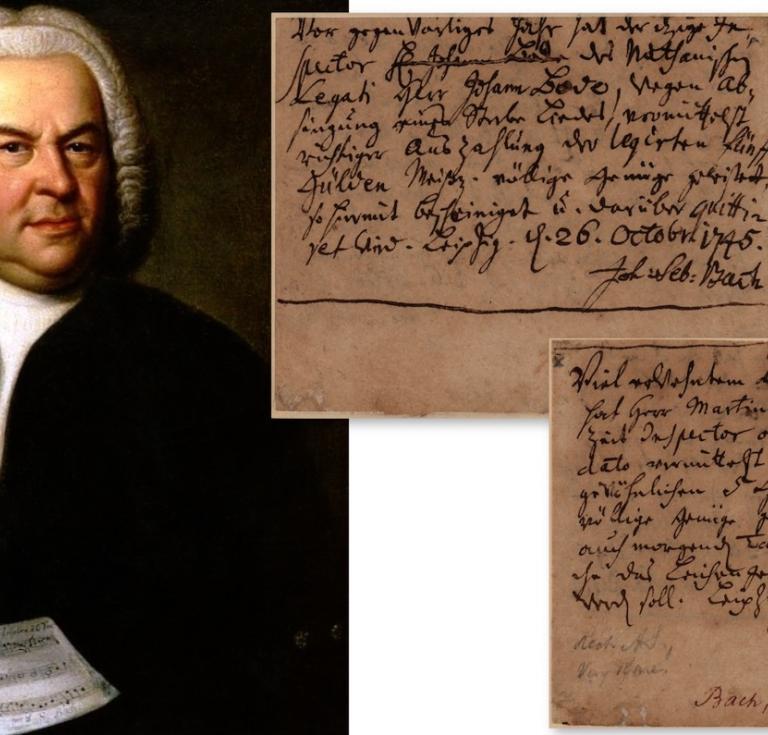 Vor gegenwärtiges Jahr hat der itzige In-
spector des Nathanischen
Legati Herr Johann Bode, wegen Ab-
singung eines Sterbe Liedes, vermittelst
richtiger Auszahlung der legirten fünff
Gülden Meißn. völlige Genüge geleistet,
so hiermit bescheiniget u. darüber quitti-
ret wird. Leipzig. d. 26. Octobr: 1745.
Joh: Seb: Bach
Viel erwehntem
hat Herr Martin
Zeit Inspector
dato vermittelst
gewöhnlichen 5
völlige Genüge
auch morgend
che das Leichen
werd soll. Leipz
Bach,